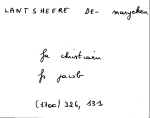 LANTSHEERE DE- marycken
fa christiaen
fs jacob
(1700) 326, 131